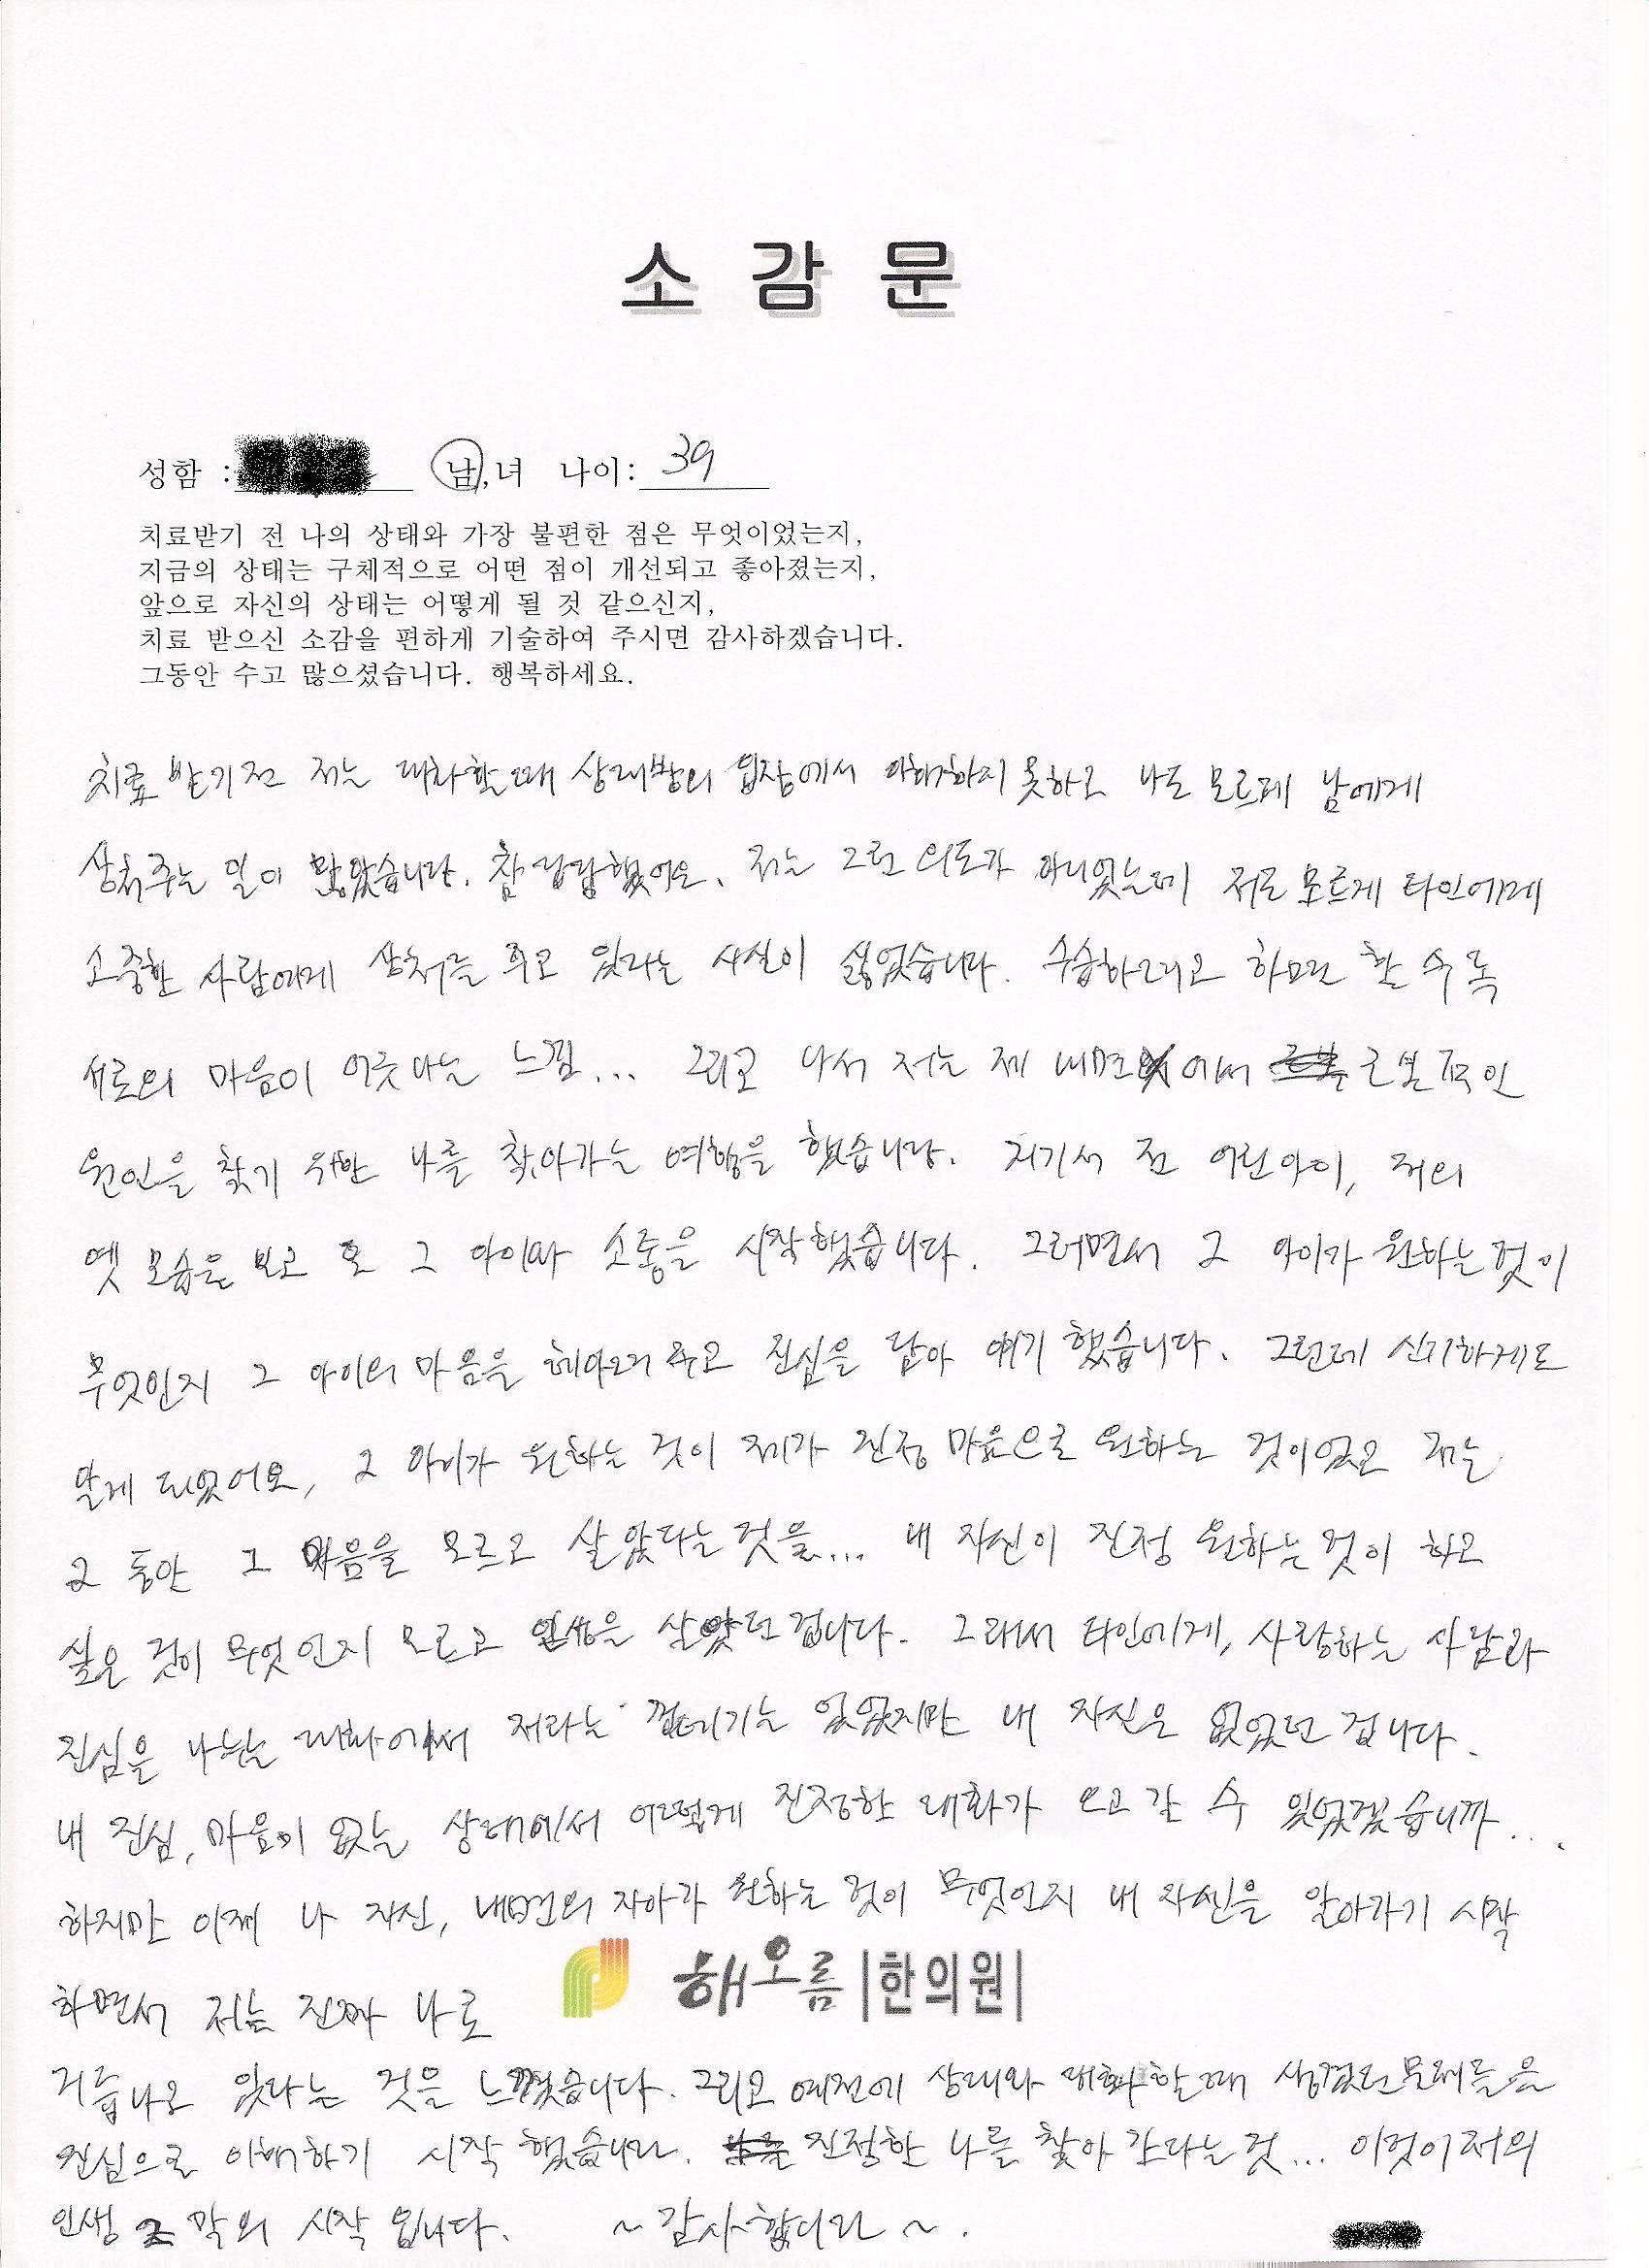 소감문
성함 : 남,녀 나이: 39
치료받기 전 나의 상태와 가장 불편한 점은 무엇이었는지,
지금의 상태는 구체적으로 어떤 점이 개선되고 좋아졌는지,
앞으로 자신의 상태는 어떻게 될 것 같으신지,
치료 받으신 소감을 편하게 기술하여 주시면 감사하겠습니다.
그동안 수고 많으셨습니다. 행복하세요.
치료 받기전 저는 대화할때 상대방의 입장에서 이해하지 못하고 나도 모르게 남에게
상처주는 일이 많았습니다. 참 답답했어요. 저는 그런 의도가 아니었는데 저도 모르게 타인에게
소중한 사람에게 상처를 주고 있다는 사실이 싫었습니다. 수습하려고 하면 할 수록
서로의 마음이 어긋나는 느낌... 그리고 나서 저는 제 내면에서 근본적인
원인을 찾기 위한 나를 찾아가는 여행을 했습니다. 저기서 전 어린아이, 저의
옛 모습을 보고 그 아이와 소통을 시작했습니다. 그러면서 그 아이가 원하는것이
무엇인지 그 아이의 마음을 헤아려 주고 진심을 담아 얘기 했습니다. 그런데 신기하게도
알게 되었어요, 그 아이가 원하는 것이 제가 진정 마음으로 원하는 것이었고 저는
그 동안 그 마음을 모르고 살았다는것을... 내 자신이 진정 원하는것이 하고
싶은 것이 무엇인지 모르고 인생을 살았던겁니다. 그래서 타인에게, 사랑하는 사람과
진심을 나누는 대화에서 저라는 껍데기는 있었지만 내 자신은 없었던 겁니다.
내 진심, 마음이 없는 상태에서 어떻게 진정한 대화가 오고 갈 수 있었겠습니까...
하지만 이제 나 자신, 내면의 자아가 원하는 것이 무엇인지 내 자신을 알아가기 시작
하면서 저는 진짜 나로
해오름|한의원|
거듭나고 있다는 것을 느꼈습니다. 그리고 예전에 상대와 대화할때 생겼던문제들을
진심으로 이해하기 시작 했습니다. 진정한 나를 찾아 간다는것... 이것이 저의
인생 2막의 시작 입니다. ~감사합니다~.